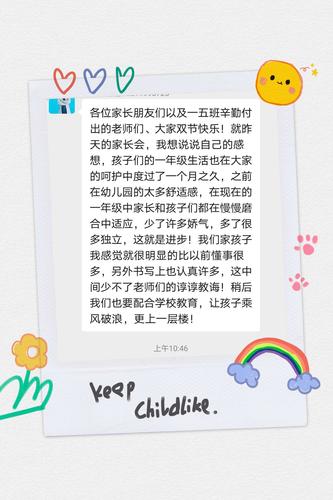 各位家长朋友们以及一五班辛勤付
出的老师们、大家双节快乐！就昨
天的家长会，我想说说自己的感
想，孩子们的一年级生活也在大家
的呵护中度过了一个月之久，之前
在幼儿园的太多舒适感，在现在的
一年级中家长和孩子们都在慢慢磨
合中适应，少了许多娇气，多了很
多独立，这就是进步！我们家孩子
我感觉就很明显的比以前懂事很
多，另外书写上也认真许多，这中
间少不了老师们的谆谆教诲！稍后
我们也要配合学校教育，让孩子乘
风破浪，更上一层楼！
上午10:46
keep
Childlike.